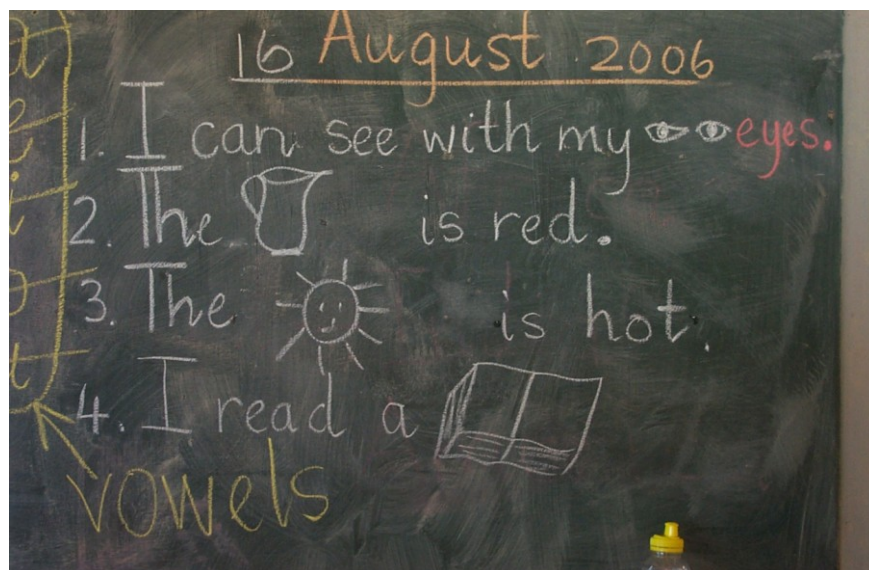 16 August 2006
1. I can see with my eyes.
2. The is red.
3. The is hot.
4. I read a
a
e
i
o
u
vowels